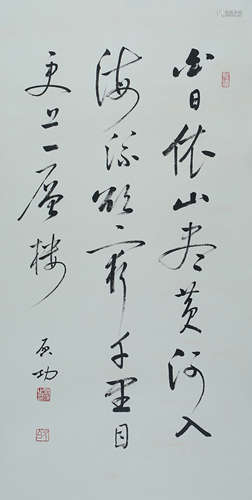 白日依山尽黄河入
海流欲穷千里目
更上一层楼
启功